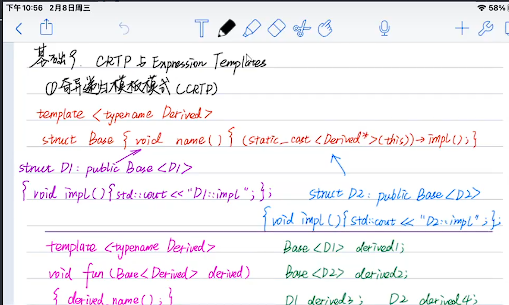 下午10:56 2月8日周三
58%
基础9. CRTP 与 Expression Templates
①奇异递归模板模式 (CRTP)
template <typename Derived>
struct Base { void name() { (static_cast <Derived*>(this))→impl(); }
struct D1: public Base <D1>
{ void impl(){ std::cout << "D1::impl"; };
struct D2: public Base <D2>
{ void impl(){ std::cout << "D2::impl"; };
template <typename Derived>
void fun (Base<Derived> derived)
{ derived.name(); }
Base <D1> derived1;
Base <D2> derived2;
D1 derived3; D2 derived4;